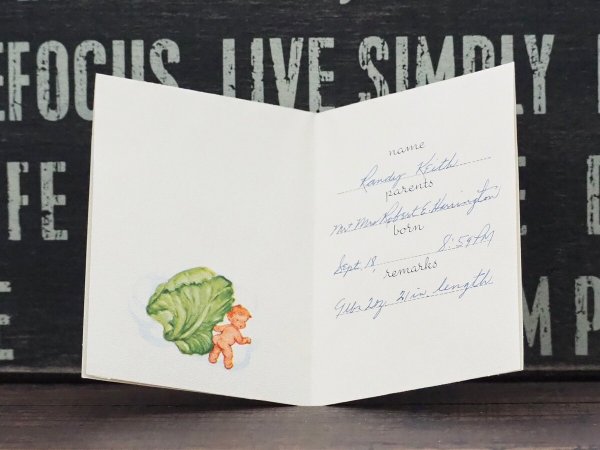 EFOCUS LIVE SIMPLY
FE
name
Randy Keith
parents
Mr + Mrs Robert E. Harrington
born
Sept. 18, 8:59 PM
remarks
9 lbs 2 oz. 21 in. length.